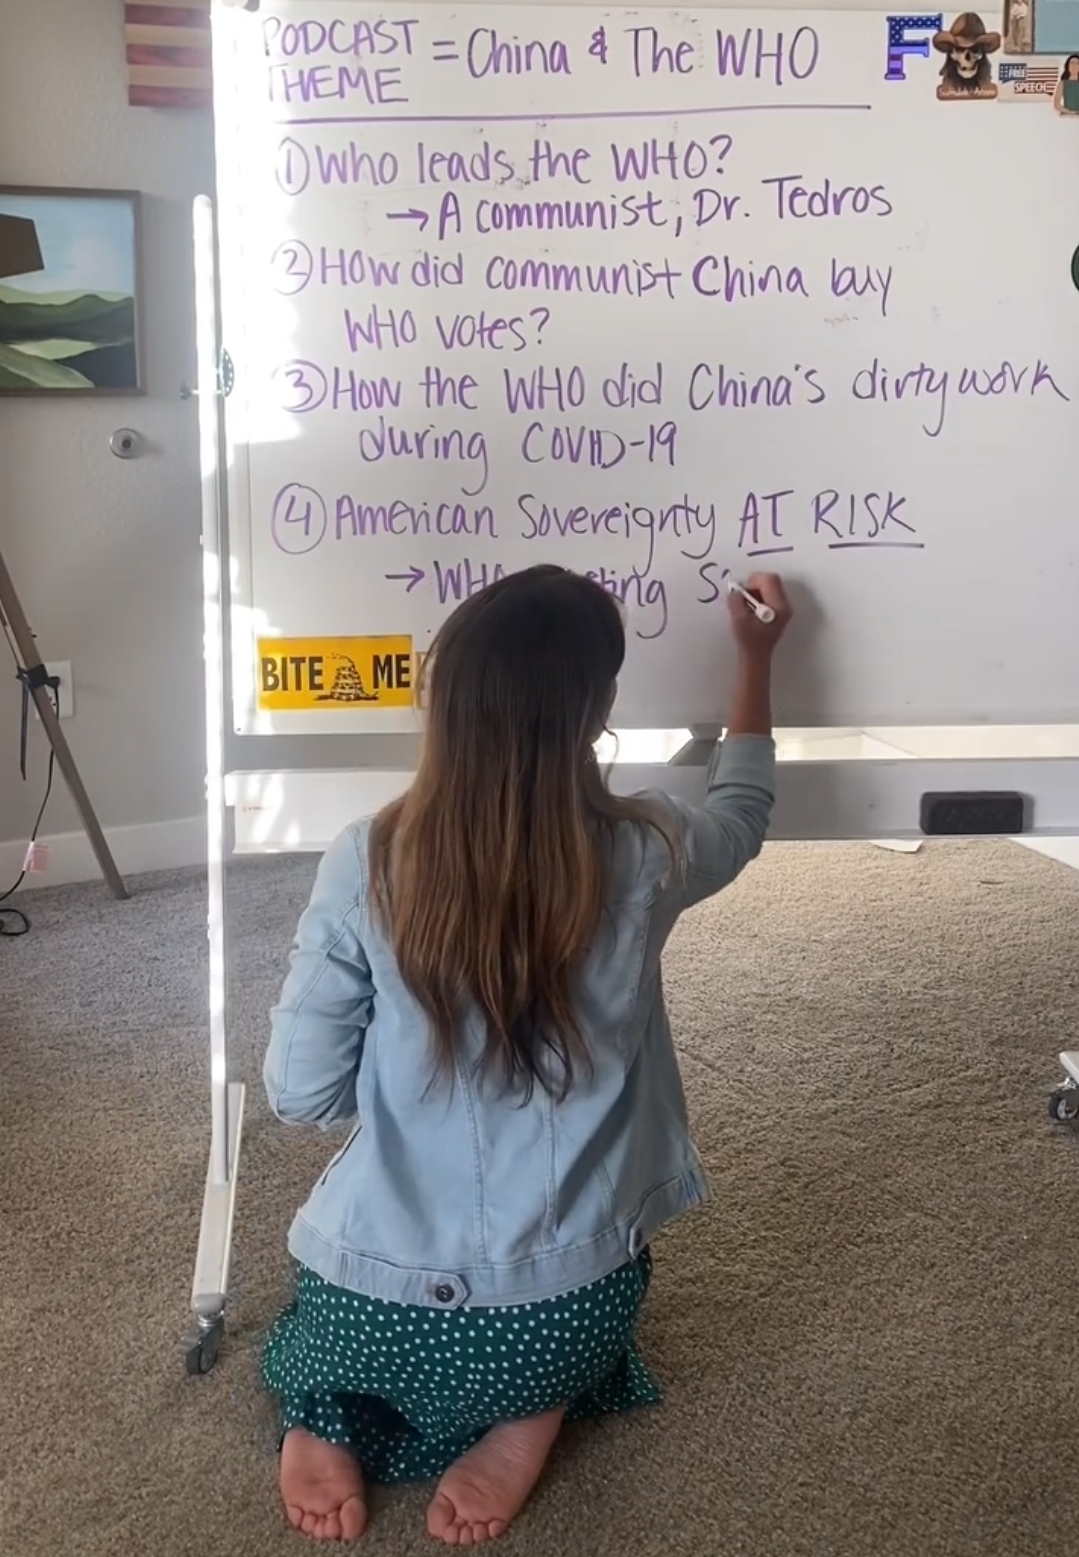 PODCAST THEME = China & The WHO
① Who leads the WHO?
→ A communist, Dr. Tedros
② How did communist China buy
WHO votes?
③ How the WHO did China's dirty work
during COVID-19
④ American Sovereignty AT RISK
→ WHO
BITE ME
F
FREE SPEECH